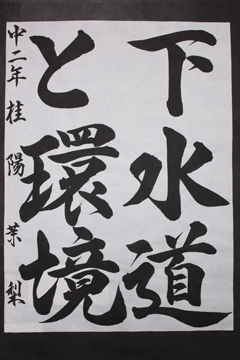 下水道
と環境
中二年 桂 陽菜梨